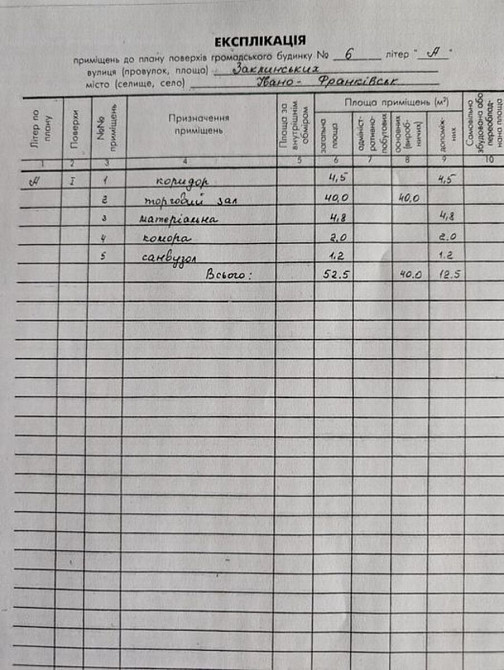 ЕКСПЛІКАЦІЯ
приміщень до плану поверхів громадського будинку № 6 літер "А"
вулиця (провулок, площа) Заклинських
місто (селище, село) Івано-Франківськ
Літер по плану
Поверхи
№№ приміщень
Призначення приміщень
Площа за внутрішнім обміром
Площа приміщень (м²)
загальна площа
адмініст-ративно-побутових
основних (вироб-ничих)
допоміж-них
Самовільно збудована або переоблад-нана площа
1 2 3 4 5 6 7 8 9 10
А I 1 коридор 4,5 4,5
2 торговий зал 40,0 40,0
3 матеріальна 4,8 4,8
4 комора 2,0 2,0
5 санвузол 1,2 1.2
Всього: 52.5 40.0 12.5